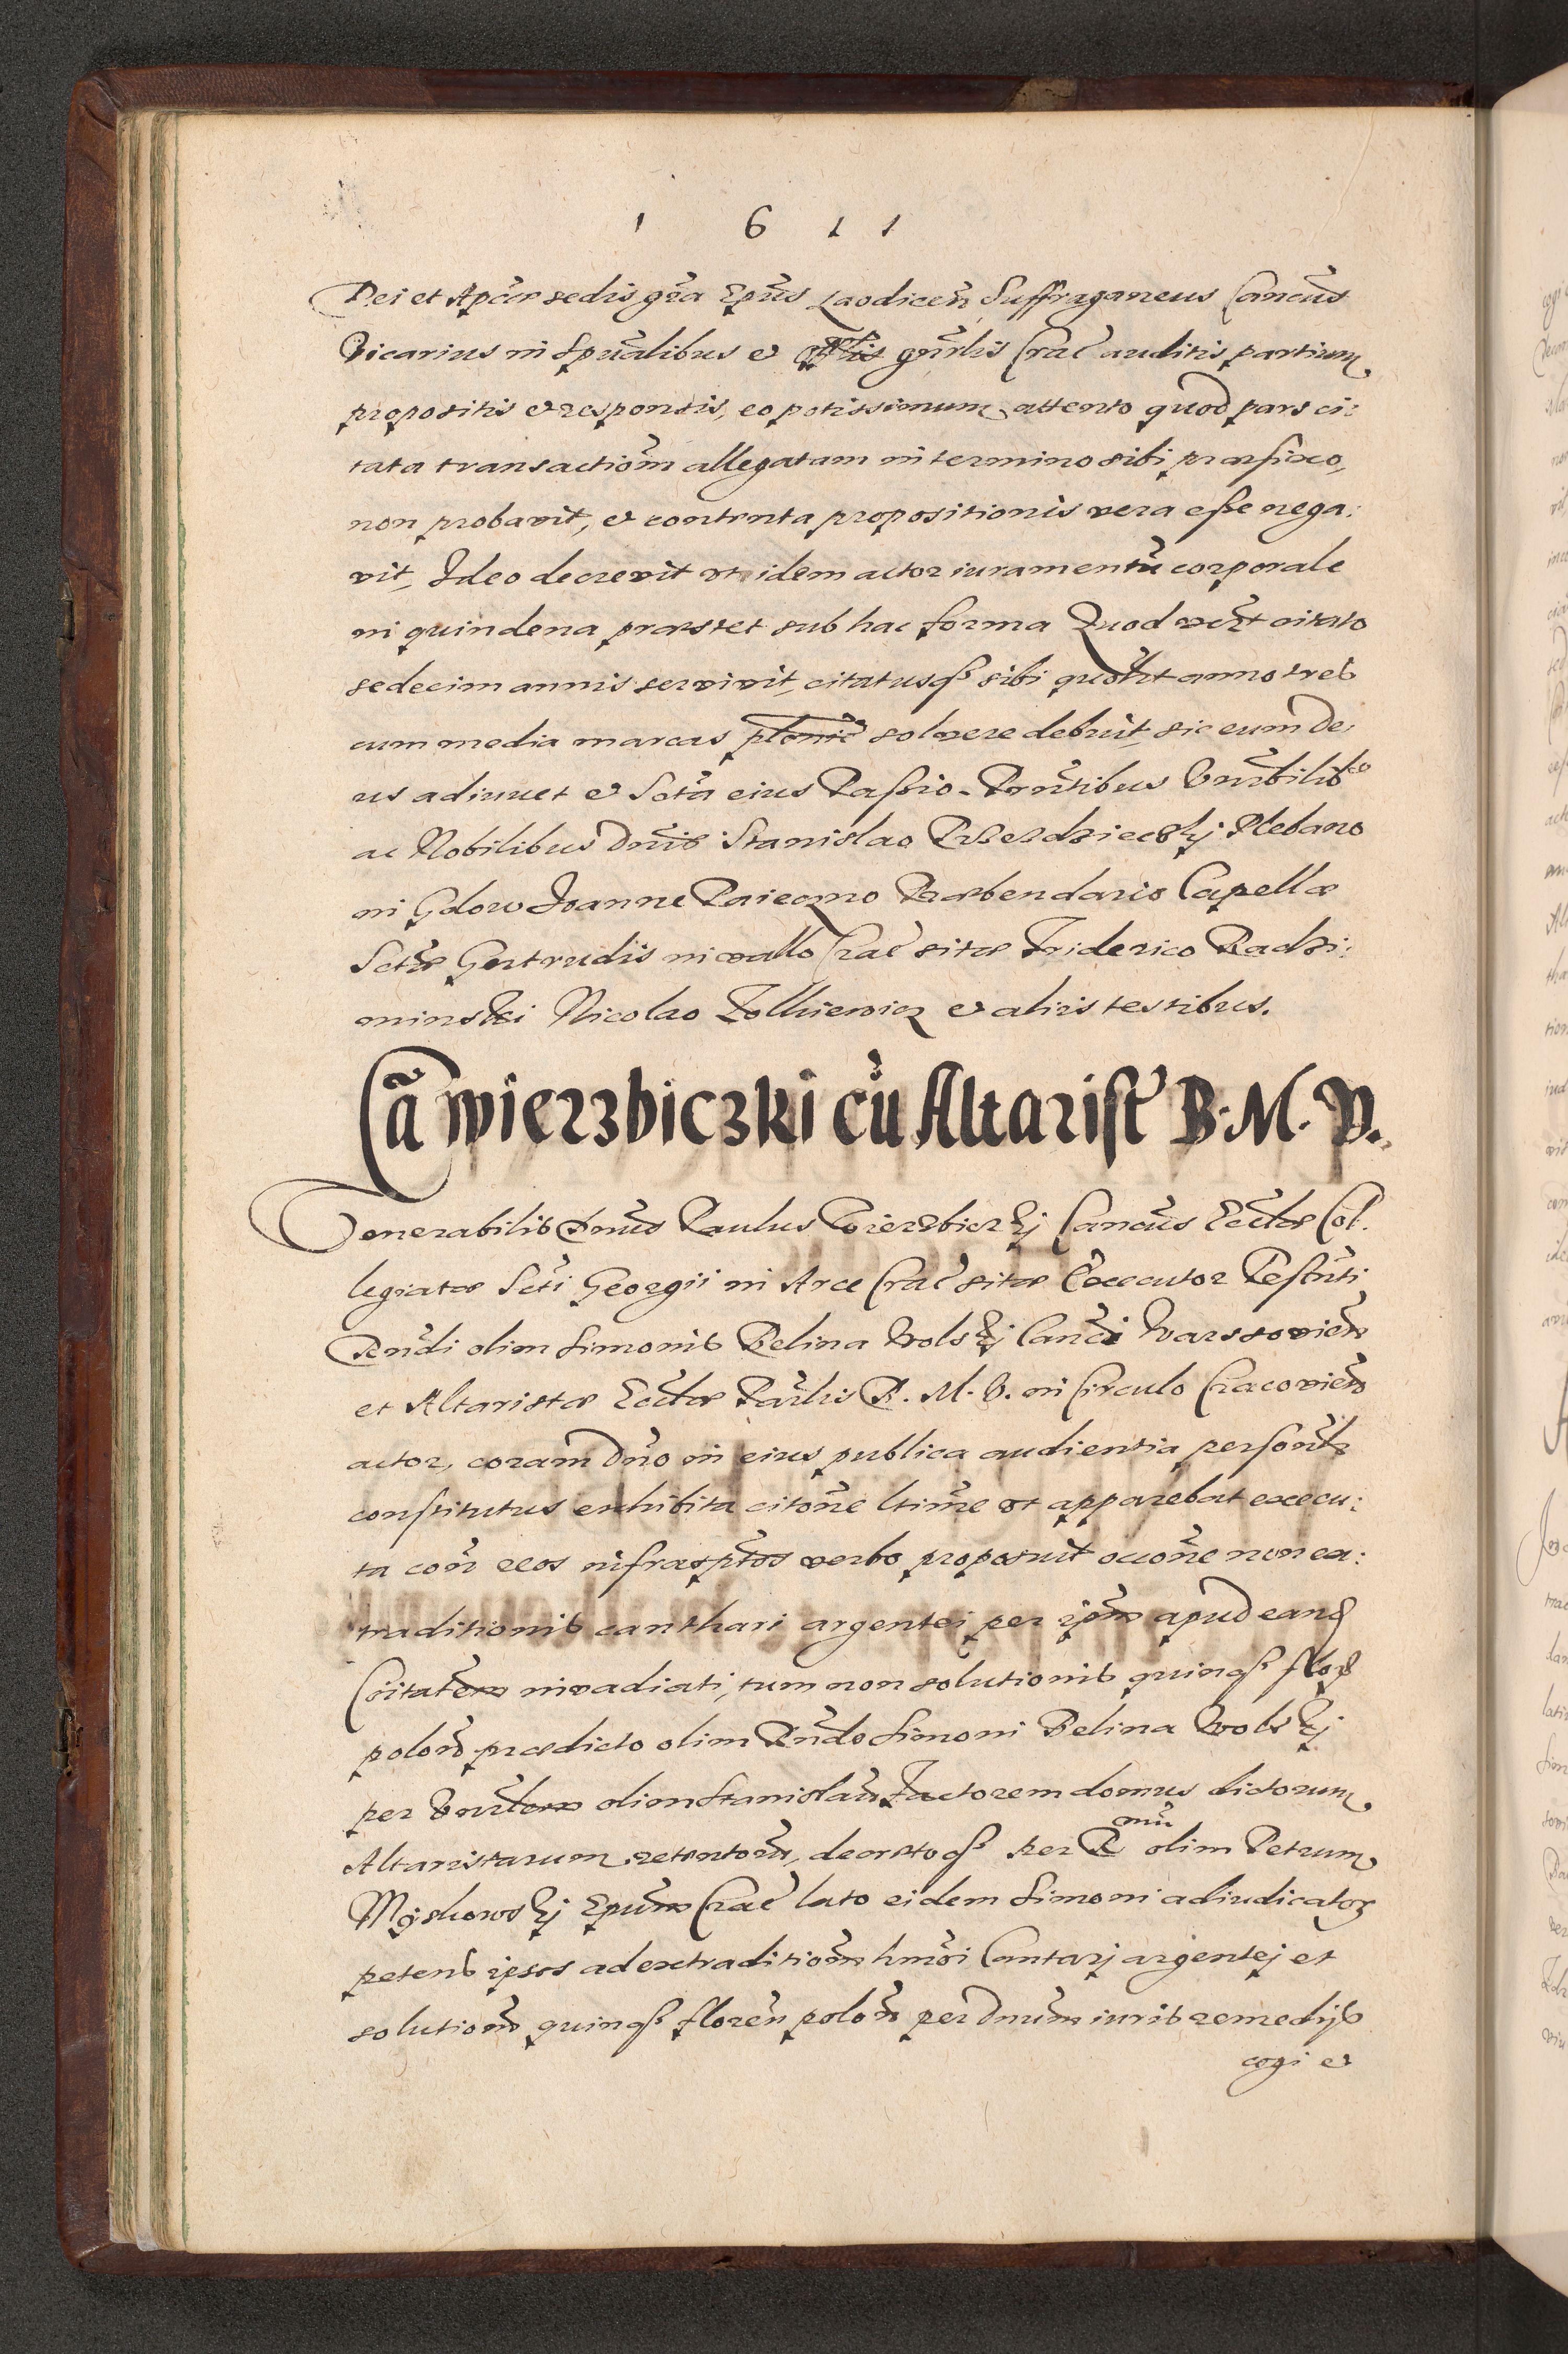 1 6 1 1
Dei et Apcae sedis gra Epus Laodicen Suffraganeus Cancus
Vicarius in Spualibus et gnrlis Crac auditis partium
propositis et responsis, eo potissimum attento quod pars ci:
tata transactiom allegatam in termino sibi praefixo,
non probavit, et contenta propositionis vera esse nega:
vit, Ideo decrevit ut idem actor iuramentu corporale
in quindena praestet sub hac forma Quod citato
sedecim annis servivit, citatusq sibi quolt anno tres
cum media marcas plonic solvere debuit, sic eum De
us adiuvet et Scta eius Passio. Prntibus Vnrbilib
ac Nobilibus Dnis Stanislao Plebano
in Gdow Joanne Praebendario Capellae
Sctae Gertrudis in vallo Crac sitae Friderico Radzi:
minski Nicolao Zolkiewicz et aliis testibus.
Ca wierzbiczki cu Altarist B. M. V.
Venerabilis Dnus Paulus Wierzbiczkj Cancus Ecclae Col.
legiatae Scti Georgii in Arce Crac sitae Executor Testnti
Rendi olim Simonis Belina Wolskj Canci Warssovien
et Altaristae Ecclae Parlis B. M. V. in Circulo Cracovien
actor, coram Dno in eius publica audientia personlr
constitutus exhibita citone ltime ut apparebat execu:
ta con eos infrasptos verbo proposuit occone non ex:
traditionis canthari argentei per ipm apud eand
Coitatem invadiati, tum non solutionis quinq flor
polon praedicto olim Rndo Simoni Belina Wolskj
per Vnrlem olim Stanislau Factorem domus dictorum
Altaristarum retentoru, decretoq per R mu olim Petrum
Myskowskj Epum Crac lato eidem Simoni adiudicator
petens ipsos ad extraditiom hmoi Cantarj argentej et
solutiom quinq floren polon per Dnum iuris remedijs
cogi et